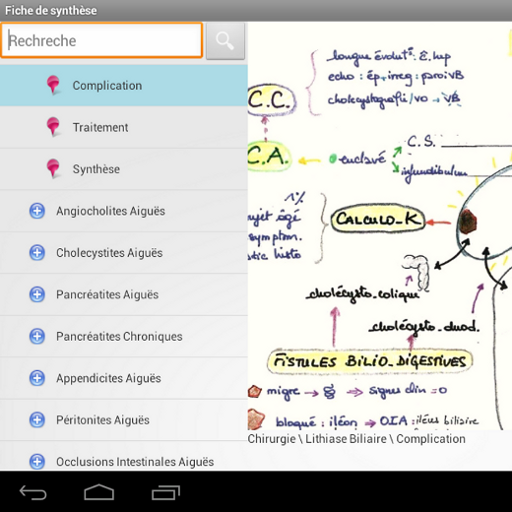 Fiche de synthèse
Rechreche
Complication
Traitement
Synthèse
Angiocholites Aiguës
Cholecystites Aiguës
Pancréatites Aiguës
Pancréatites Chroniques
Appendicites Aiguës
Péritonites Aiguës
Occlusions Intestinales Aiguës
longue évolut°. E. Hup
echo : ép + irreg : paroi VB
cholecystografi/vo → VB
C.C.
C.A.
enclavé
C.S.
infundibulum
1%
sujet âgé
symptom.
histo
CALCULO_K
cholécysto_colique
cholécysto_duod.
FISTULES BILIO_DIGESTIVES
migre → → signes clin = 0
bloqué : iléon → OIA : iléus biliaire
Chirurgie \ Lithiase Biliaire \ Complication